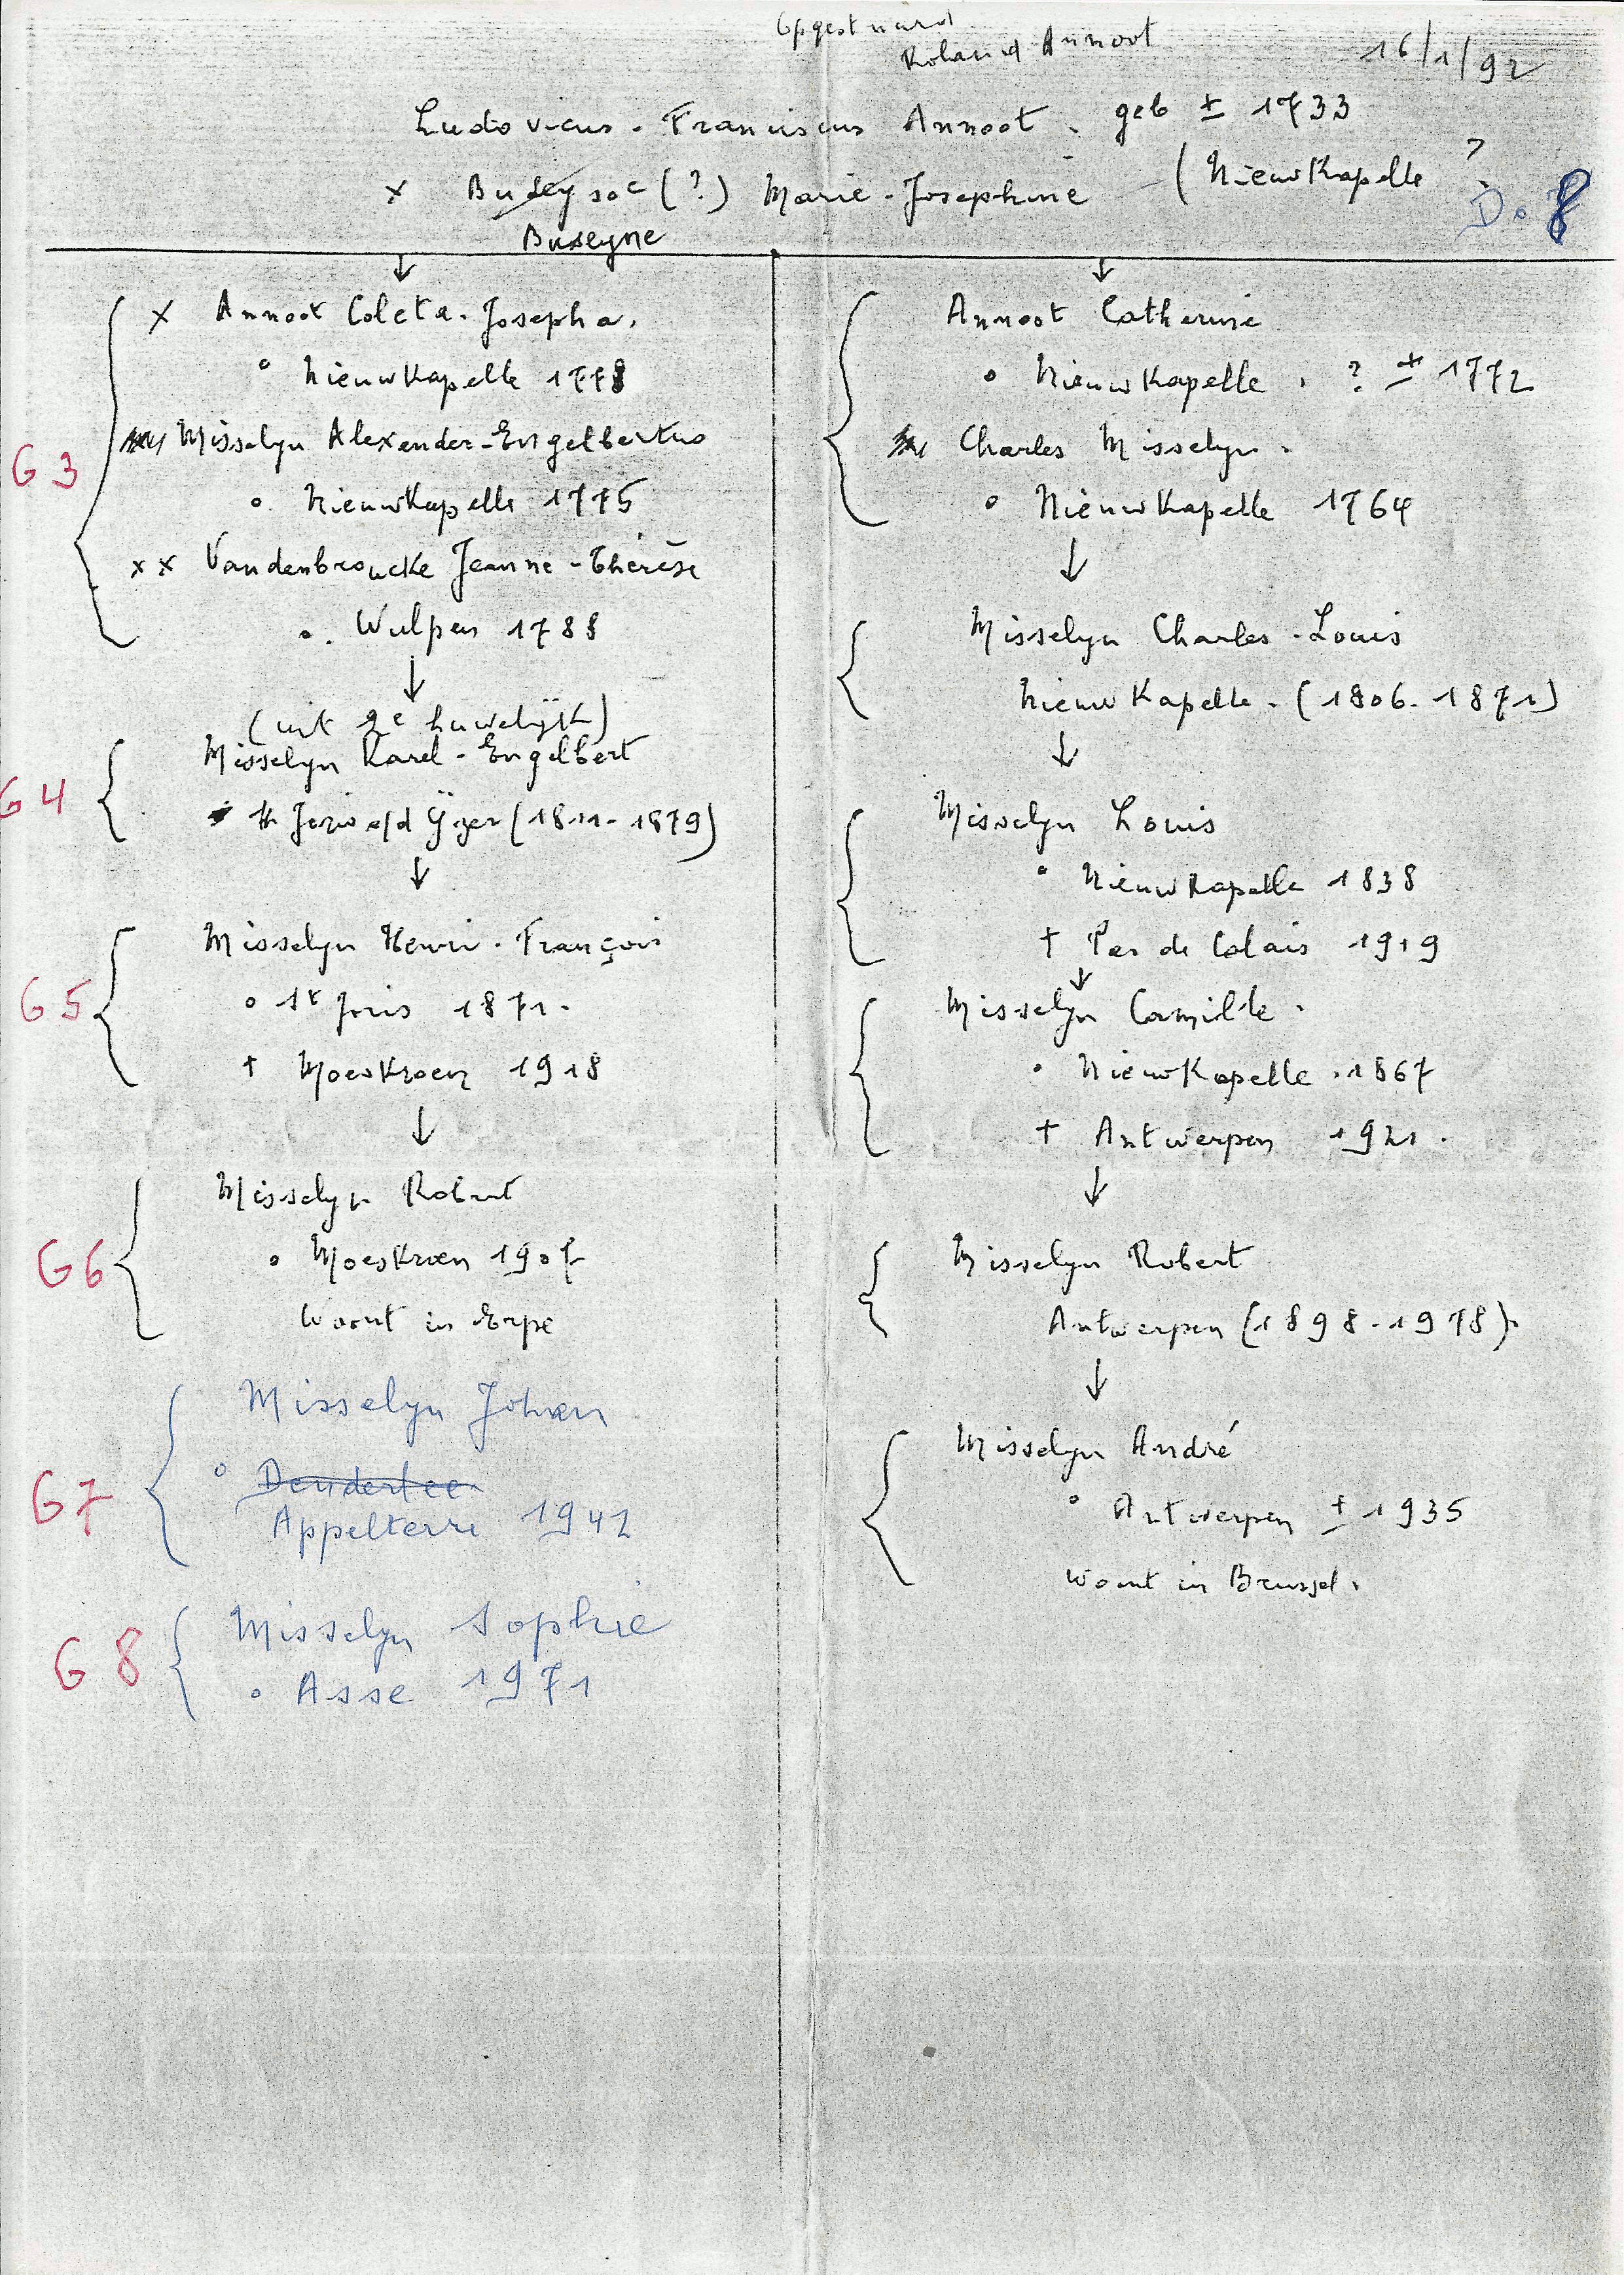 Opgest naard
Roland Annoot
16/1/92
Ludovicus - Franciscus Annoot. geb ± 1733
x (?) Marie-Josephine (Nieuwkapelle ?
Buseyne
D. 8
G3
x Annoot Coleta-Josepha.
° Nieuwkapelle 1778
Misselyn Alexender-Engelbertus
° Nieuwkapelle 1775
xx Vandenbroucke Jeanne-Thérèse
°. Wulpen 1788
↓
(uit 2e huwelijk)
G4
Misselyn Karel-Engelbert
St Joris o/d Yzer (1811-1879)
↓
G5
Misselyn Henri-François
° St Joris 1871.
+ Moeskroen 1918
↓
G6
Misselyn Robert
° Moeskroen 1907
Woont in Erpe
G7
Misselyn Johan
° Denderlee
Appelterre 1942
G8
Misselyn Sophie
° Asse 1971
Annoot Catherine
° Nieuwkapelle. ? ± 1772
Charles Misselyn.
° Nieuwkapelle 1764
↓
Misselyn Charles-Louis
Nieuwkapelle. (1806-1871)
↓
Misselyn Louis
° Nieuwkapelle 1838
+ Pas de Calais 1919
↓
Misselyn Camille.
° Nieuwkapelle. 1867
+ Antwerpen 1921.
↓
Misselyn Robert
Antwerpen (1898-1978).
↓
Misselyn André
° Antwerpen ± 1935
Woont in Brussel.